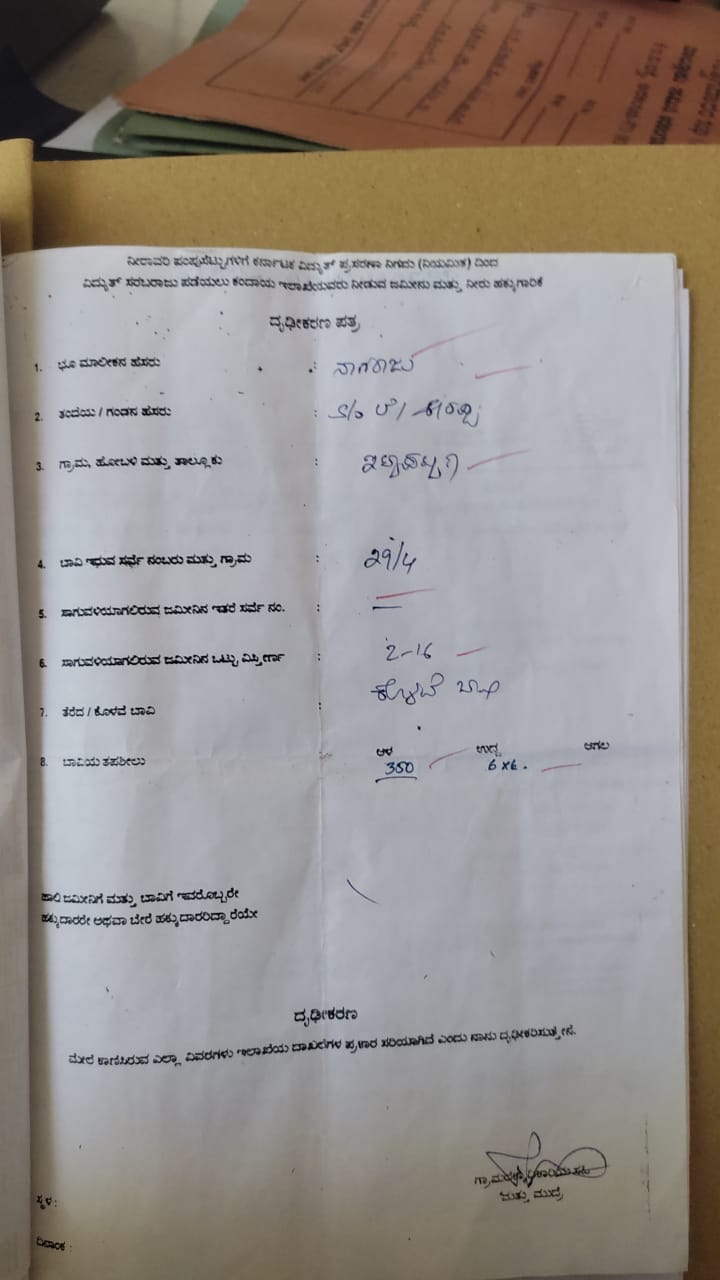 ನೀರಾವರಿ ಪಂಪ್ಸಸೆಟ್ಟುಗಳಿಗೆ ಕರ್ನಾಟಕ ವಿದ್ಯುತ್ ಪ್ರಸರಣಾ ನಿಗಮ (ನಿಯಮಿತ) ದಿಂದ
ವಿದ್ಯುತ್ ಸರಬರಾಜು ಪಡೆಯಲು ಕಂದಾಯ ಇಲಾಖೆಯವರು ನೀಡುವ ಜಮೀನು ಮತ್ತು ನೀರು ಹಕ್ಕುಗಾರಿಕೆ
ದೃಢೀಕರಣ ಪತ್ರ
1. ಭೂ ಮಾಲೀಕನ ಹೆಸರು : ನಾಗರಾಜು
2. ತಂದೆಯ / ಗಂಡನ ಹೆಸರು : S/o ಲೇ/
3. ಗ್ರಾಮ, ಹೋಬಳಿ ಮತ್ತು ತಾಲ್ಲೂಕು :
4. ಬಾವಿ ಇರುವ ಸರ್ವೆ ನಂಬರು ಮತ್ತು ಗ್ರಾಮ : 29/4
5. ಸಾಗುವಳಿಯಾಗಲಿರುವ ಜಮೀನಿನ ಇತರೆ ಸರ್ವೆ ನಂ. : —
6. ಸಾಗುವಳಿಯಾಗಲಿರುವ ಜಮೀನಿನ ಒಟ್ಟು ವಿಸ್ತೀರ್ಣ : 2-16
7. ತೆರೆದ / ಕೊಳವೆ ಬಾವಿ : ಕೊಳವೆ ಬಾವಿ
8. ಬಾವಿಯ ತಪಶೀಲು ಆಳ ಉದ್ದ ಅಗಲ
350 6x6.
ಹಾಲಿ ಜಮೀನಿಗೆ ಮತ್ತು ಬಾವಿಗೆ ಇವರೊಬ್ಬರೇ
ಹಕ್ಕುದಾರರೇ ಅಥವಾ ಬೇರೆ ಹಕ್ಕುದಾರರಿದ್ದಾರೆಯೇ
ದೃಢೀಕರಣ
ಮೇಲೆ ಕಾಣಿಸಿರುವ ಎಲ್ಲಾ ವಿವರಗಳು ಇಲಾಖೆಯ ದಾಖಲೆಗಳ ಪ್ರಕಾರ ಸರಿಯಾಗಿದೆ ಎಂದು ನಾನು ದೃಢೀಕರಿಸುತ್ತೇನೆ.
ಮತ್ತು ಮುದ್ರೆ
ಸ್ಥಳ :
ದಿನಾಂಕ :